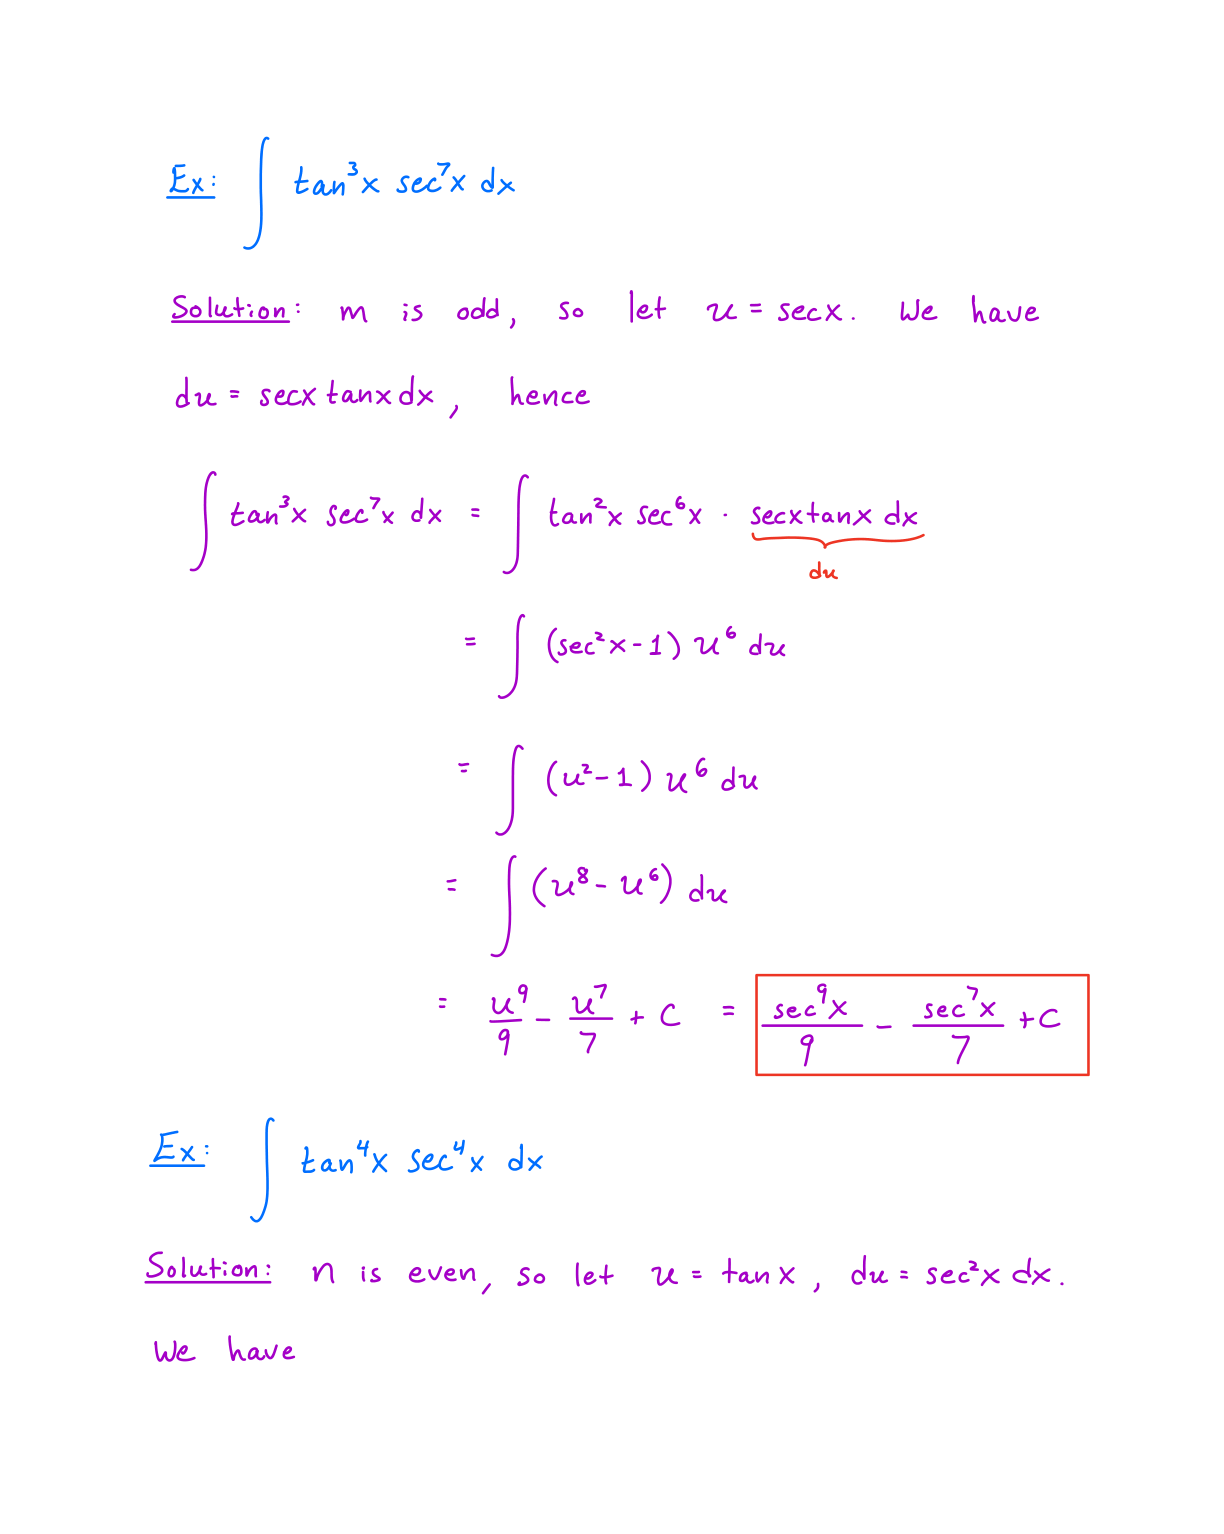 Ex: ∫ tan³x sec⁷x dx
Solution: m is odd, so let u = secx. We have
du = secx tanx dx, hence
∫ tan³x sec⁷x dx = ∫ tan²x sec⁶x · secxtanx dx
du
= ∫ (sec²x - 1) u⁶ du
= ∫ (u² - 1) u⁶ du
= ∫ (u⁸ - u⁶) du
= u⁹/9 - u⁷/7 + C = sec⁹x/9 - sec⁷x/7 + C
Ex: ∫ tan⁴x sec⁴x dx
Solution: n is even, so let u = tanx, du = sec²x dx.
We have